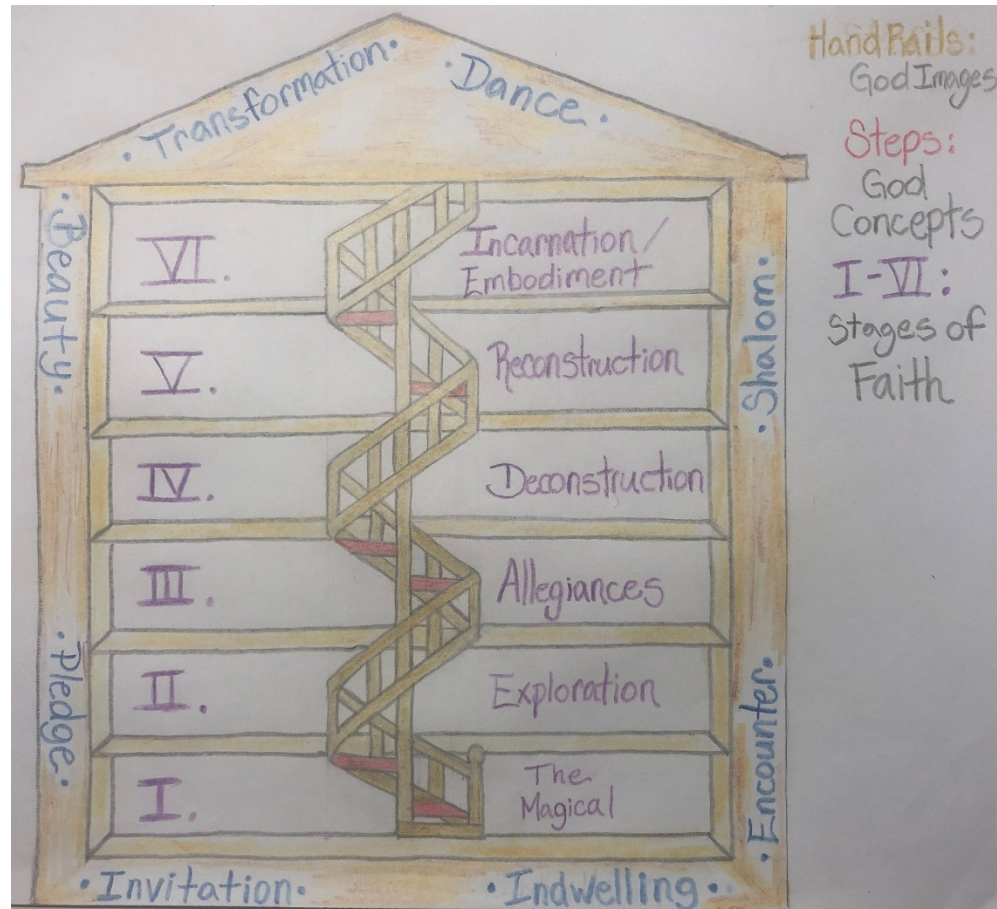 ·Transformation·
·Dance·
Hand Rails:
God Images
Steps:
God
Concepts
I-VI:
Stages of
Faith
·Beauty.
·Shalom·
VI.
Incarnation/
Embodiment
V.
Reconstruction
IV.
Deconstruction
III.
Allegiances
II.
Exploration
I.
The
Magical
·Pledge·
·Encounter·
·Invitation·
·Indwelling·